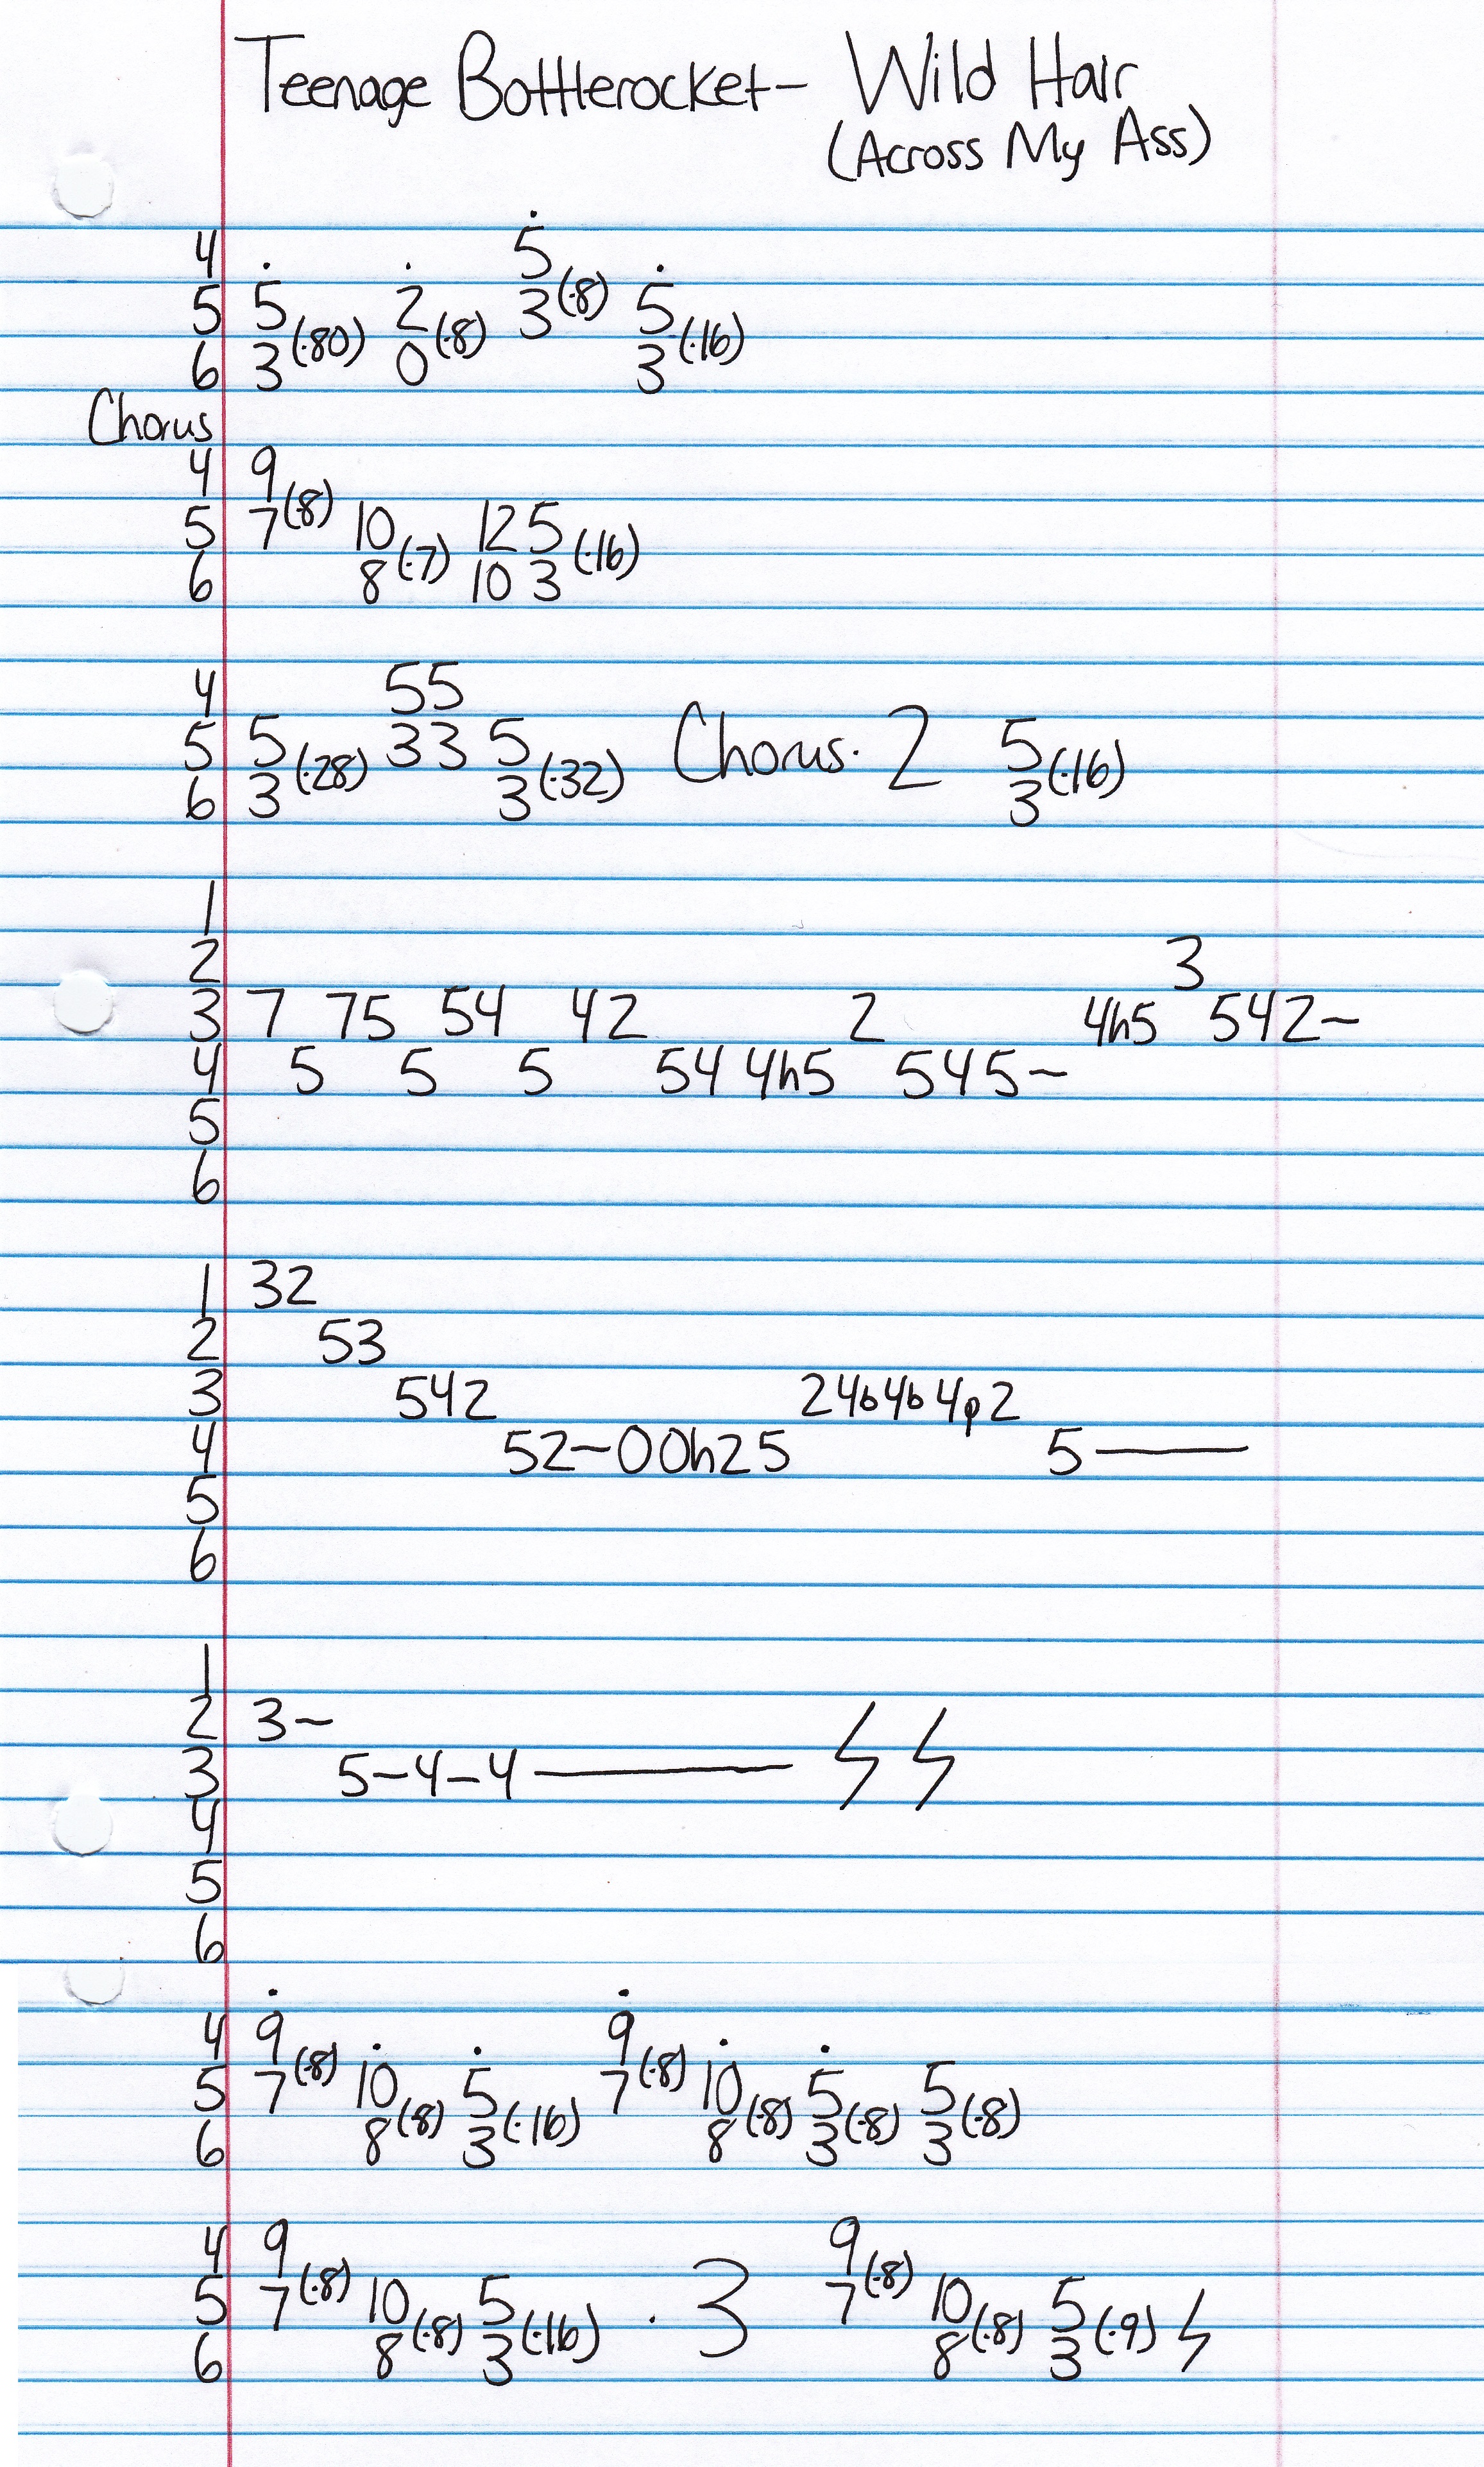 Teenage Bottlerocket- Wild Hair
(Across My Ass)
4 5
5 5 2 3(·8) 5
6 3(·80) 0(·8) 3(·16)
Chorus
4 9
5 7(·8) 10 12 5
6 8(·7) 10 3(·16)
4 55
5 5 33 5 Chorus · 2 5
6 3(·28) 3(·32) 3(·16)
1
2 3
3 7 75 54 42 2 4h5 542~
4 5 5 5 54 4h5 545~
5
6
1 32
2 53
3 542 24b4b4p2
4 52~00h25 5——
5
6
1
2 3~
3 5-4-4———
4
5
6
4 9 9
5 7(·8) 10 5 7(·8) 10 5 5
6 8(·8) 3(·16) 8(·8) 3(·8) 3(·8)
4 9 9
5 7(·8) 10 5 · 3 7(·8) 10 5
6 8(·8) 3(·16) 8(·8) 3(·9)